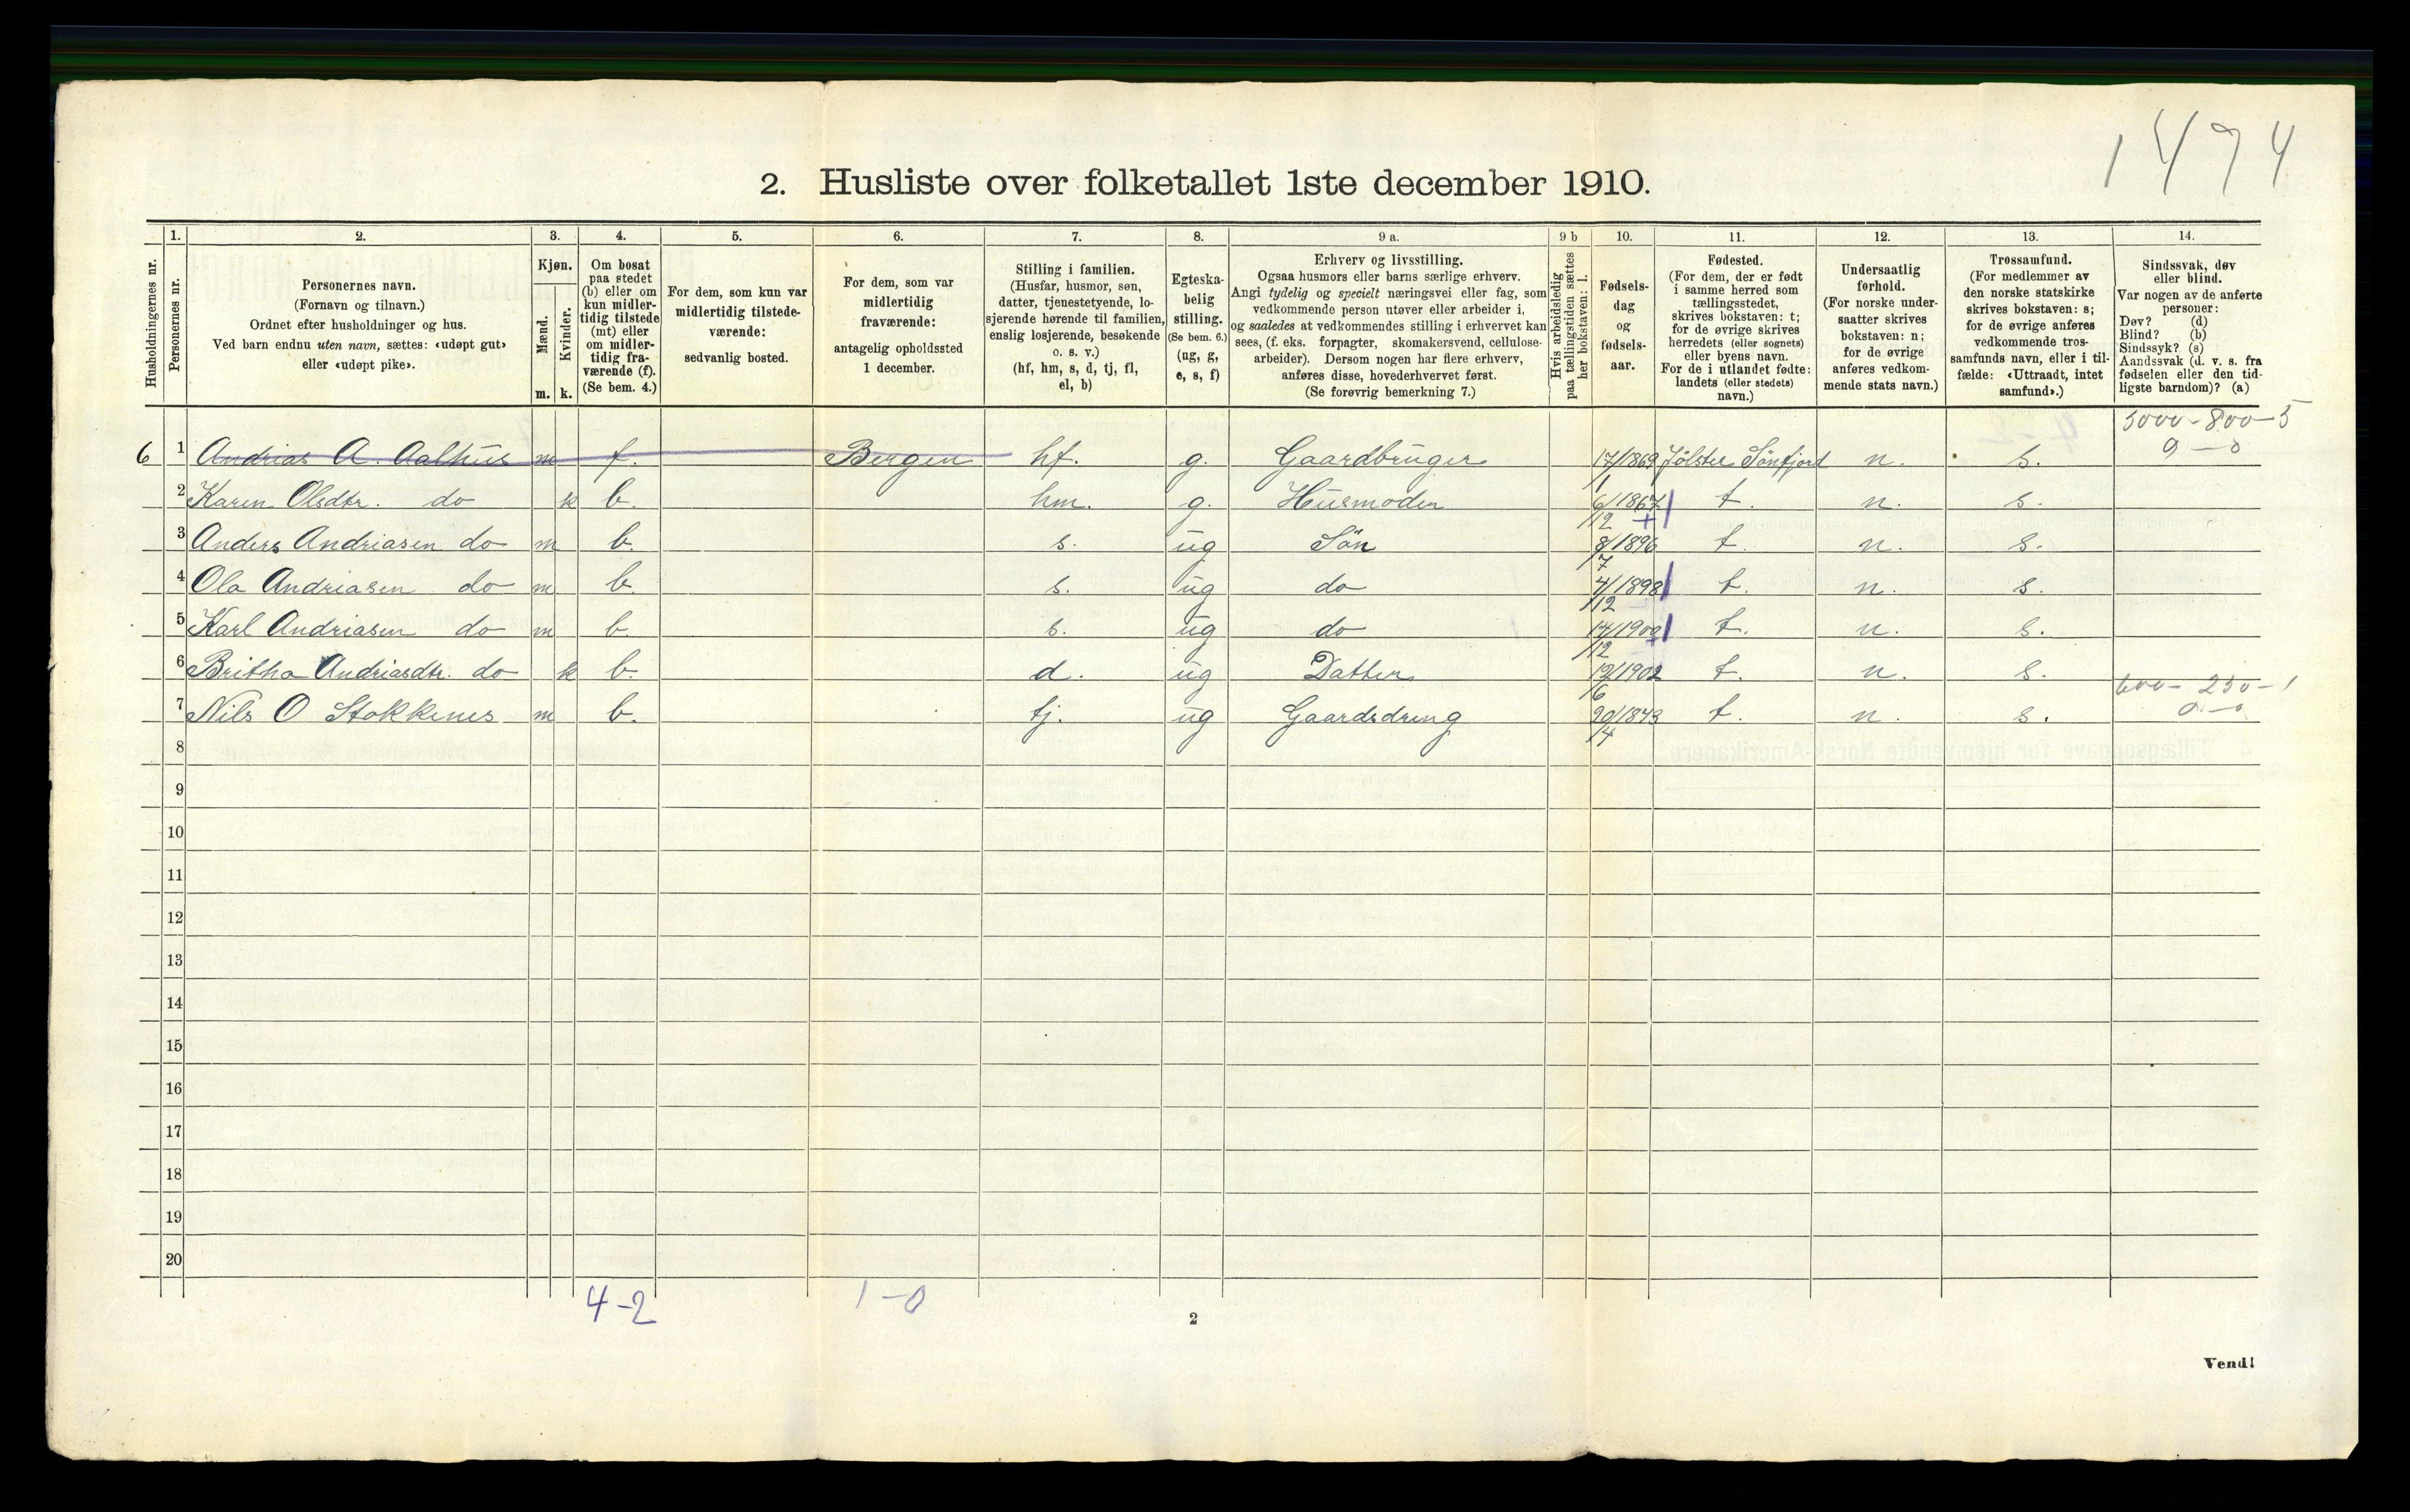 1474
2. Husliste over folketallet 1ste december 1910.
Husholdningernes nr.
1. Personernes nr.
2. Personernes navn.
(Fornavn og tilnavn.)
Ordnet efter husholdninger og hus.
Ved barn endnu uten navn, sættes: «udøpt gut»
eller «udøpt pike».
3. Kjøn.
Mænd. m.
Kvinder. k.
4. Om bosat
paa stedet
(b) eller om
kun midler-
tidig tilstede
(mt) eller
om midler-
tidig fra-
værende (f).
(Se bem. 4.)
5. For dem, som kun var
midlertidig tilstede-
værende:
sedvanlig bosted.
6. For dem, som var
midlertidig
fraværende:
antagelig opholdssted
1 december.
7. Stilling i familien.
(Husfar, husmor, søn,
datter, tjenestetyende, lo-
sjerende hørende til familien,
enslig losjerende, besøkende
o. s. v.)
(hf, hm, s, d, tj, fl,
el, b)
8. Egteska-
belig
stilling.
(Se bem. 6.)
(ug, g,
e, s, f)
9 a. Erhverv og livsstilling.
Ogsaa husmors eller barns særlige erhverv.
Angi tydelig og specielt næringsvei eller fag, som
vedkommende person utøver eller arbeider i,
og saaledes at vedkommendes stilling i erhvervet kan
sees, (f. eks. forpagter, skomakersvend, cellulose-
arbeider). Dersom nogen har flere erhverv,
anføres disse, hovederhvervet først.
(Se forøvrig bemerkning 7.)
9 b Hvis arbeidsledig
paa tællingstiden sættes
her bokstaven: l.
10. Fødsels-
dag
og
fødsels-
aar.
11. Fødested.
(For dem, der er født
i samme herred som
tællingsstedet,
skrives bokstaven: t;
for de øvrige skrives
herredets (eller sognets)
eller byens navn.
For de i utlandet fødte:
landets (eller stedets)
navn.)
12. Undersaatlig
forhold.
(For norske under-
saatter skrives
bokstaven: n;
for de øvrige
anføres vedkom-
mende stats navn.)
13. Trossamfund.
(For medlemmer av
den norske statskirke
skrives bokstaven: s;
for de øvrige anføres
vedkommende tros-
samfunds navn, eller i til-
fælde: «Uttraadt, intet
samfund».)
14. Sindssvak, døv
eller blind.
Var nogen av de anførte
personer:
Døv? (d)
Blind? (b)
Sindssyk? (s)
Aandssvak (d. v. s. fra
fødselen eller den tid-
ligste barndom)? (a)
5000-800-5
6 1 Andrias A. Aalhus m f. Bergen hf. g. Gaardbruger 17/1 1869 Jölster Sönfjord n. s. 9-0
2 Karen Olsdtr. do k b. hm. g. Husmoder 6/12 1867 t. n. s.
3 Anders Andriasen do m b. s. ug Sön 8/7 1896 t. n. s.
4 Ola Andriasen do m b. s. ug do 4/12 1898 t. n. s.
5 Karl Andriasen do m b. s. ug do 14/12 1900 t. n. s.
6 Britha Andriasdtr. do k b. d. ug Datter 12/6 1902 t. n. s.
600-250-1
7 Nils O Stokkenes m b. tj. ug Gaardsdreng 20/4 1843 t. n. s. 0-0
8
9
10
11
12
13
14
15
16
17
18
19
20
4-2 1-0
2
Vend!